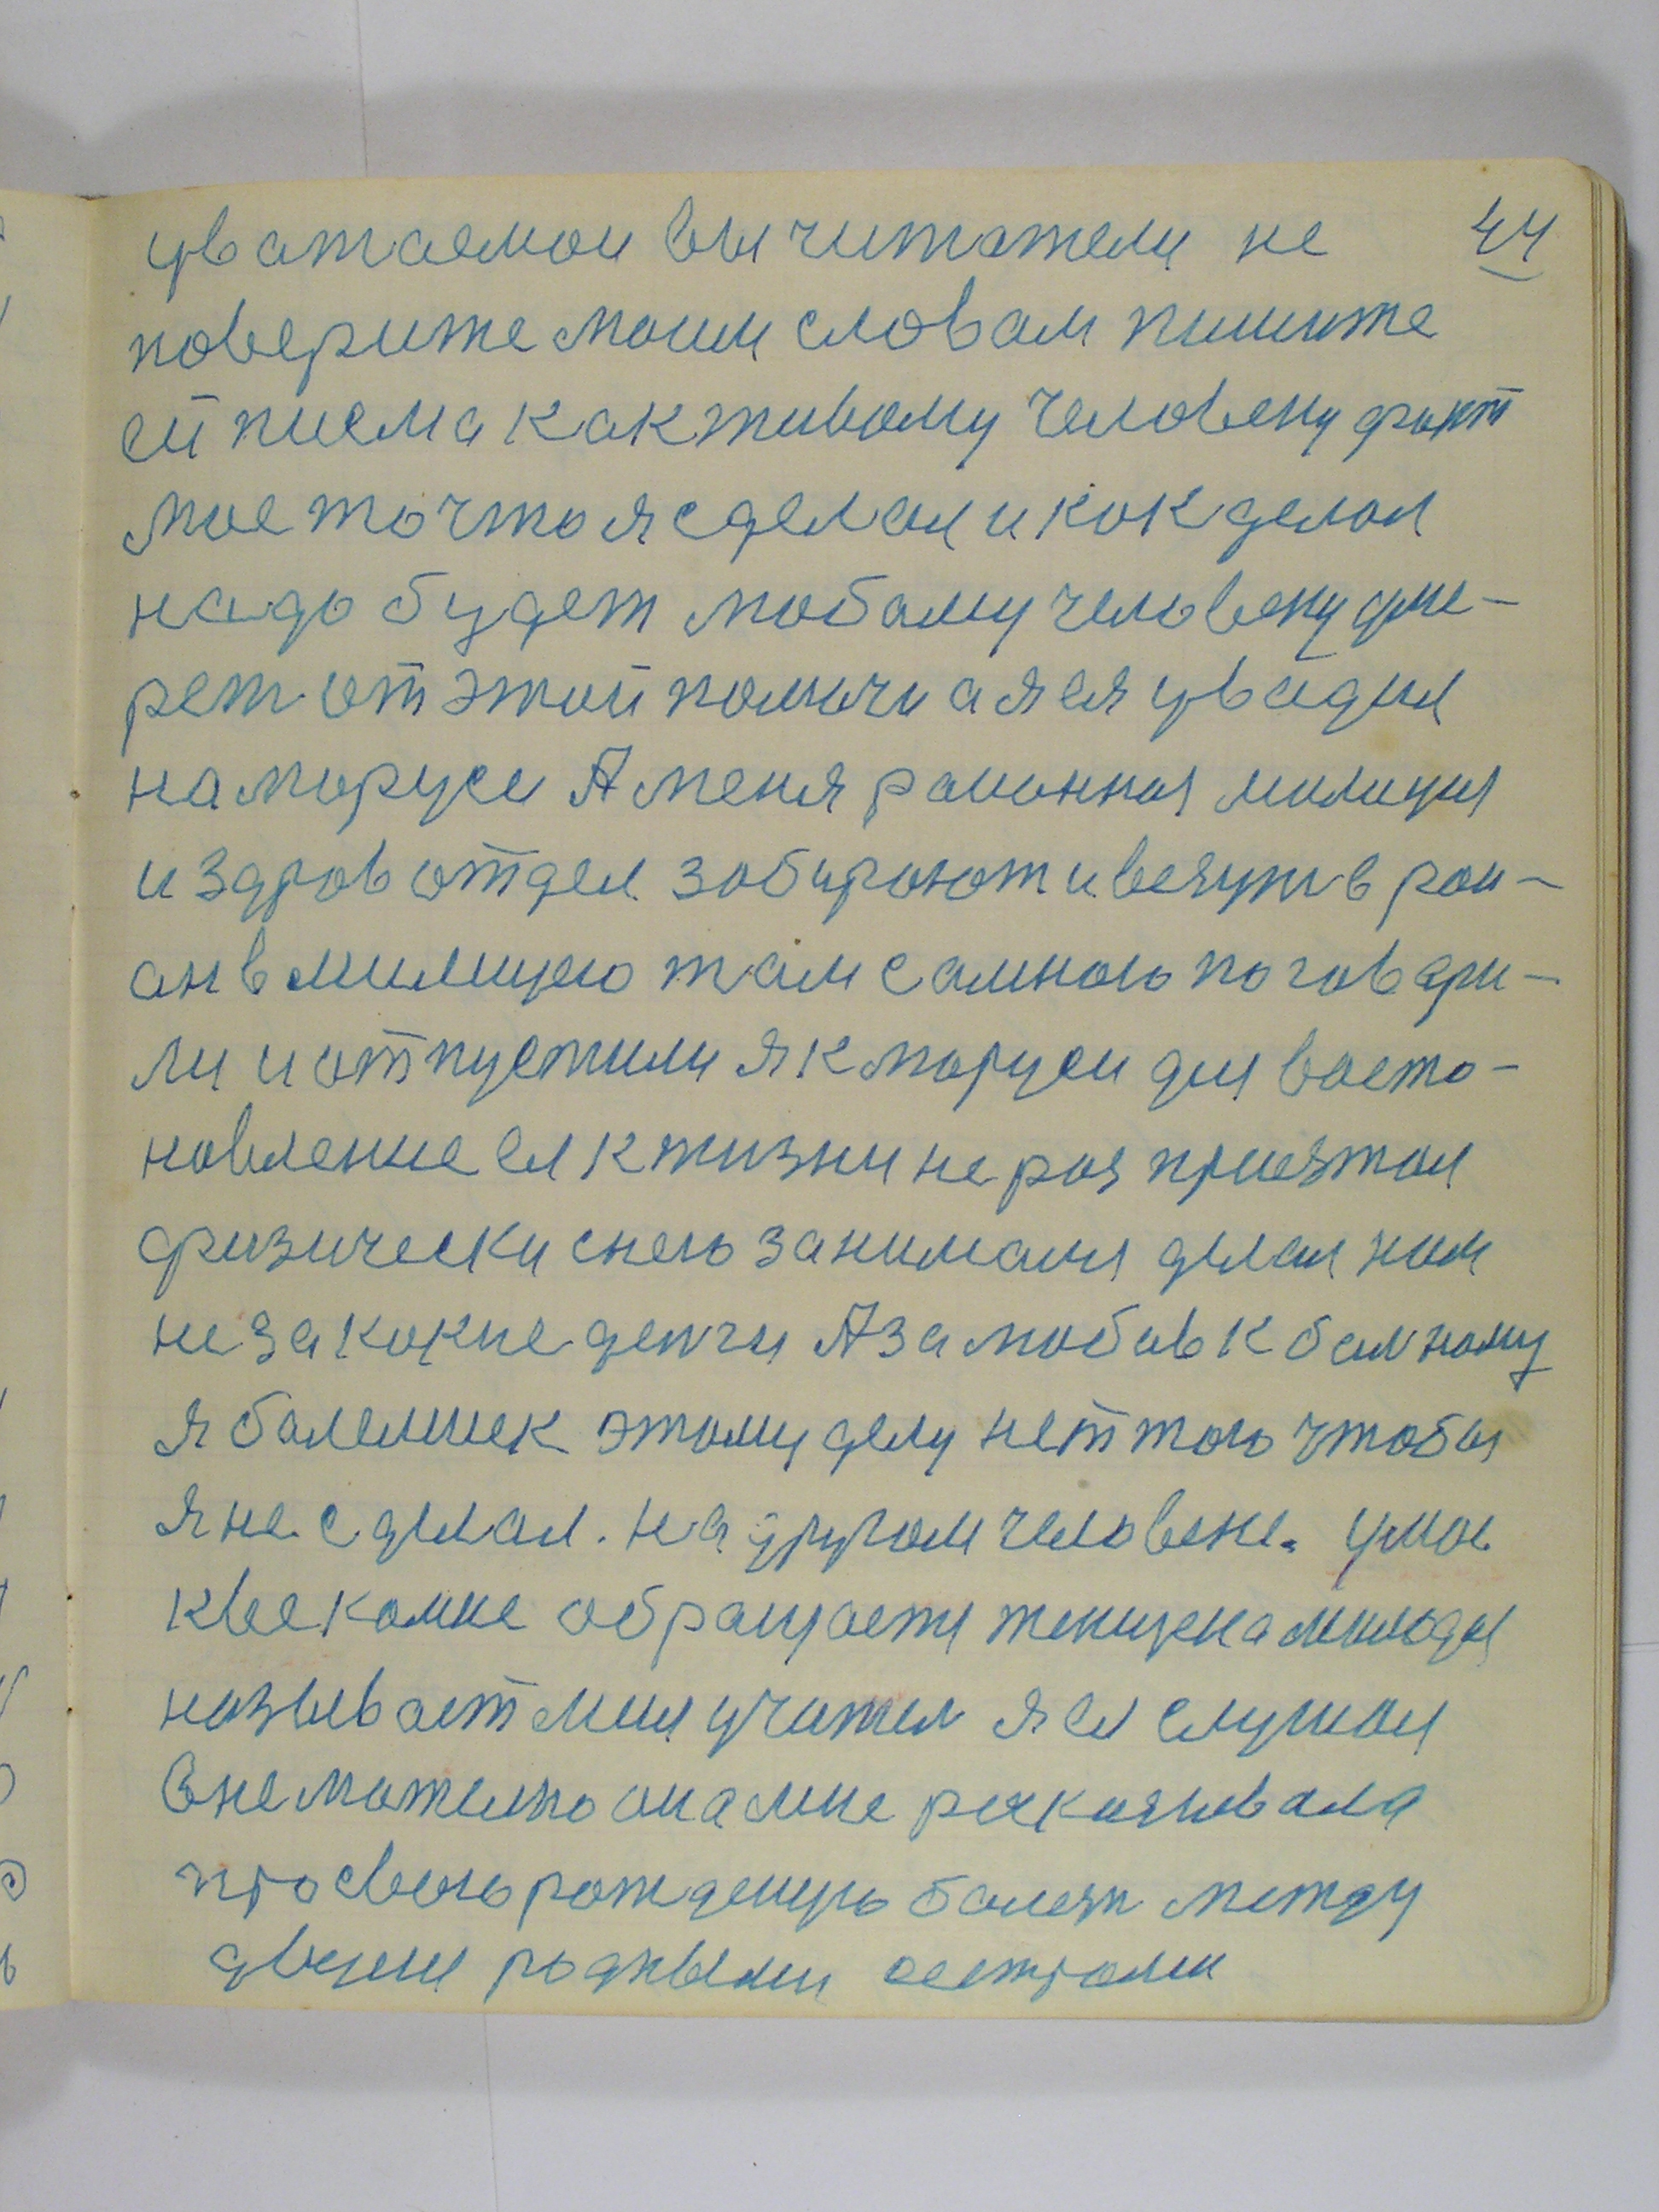 уважаемои вы читатели не 44
поверите моим словам пишите
ей писма как живому человеку факт
мое то что я сделал и как делал
надо будет любому человеку уме-
рет от этой помочи а я ея увидил
на Маруси А меня раионная милиция
и здрав отдел забирают и везут в раи-
он в милицию там самною поговари-
ли и отпустили я к маруси для восто-
новление ея к жизни не раз приезжал
физически с нею занимался делал ним
не за какие денги А за любов к болному
я болельшек этому делу нет того чтобы
я не сделал. на другом человеке. умое
к века мне обращается женщена милодая
называет миня учител я ея слушал
внемателно она мне расказывала
про свою рожденую болезн между
двумя родными сестрами